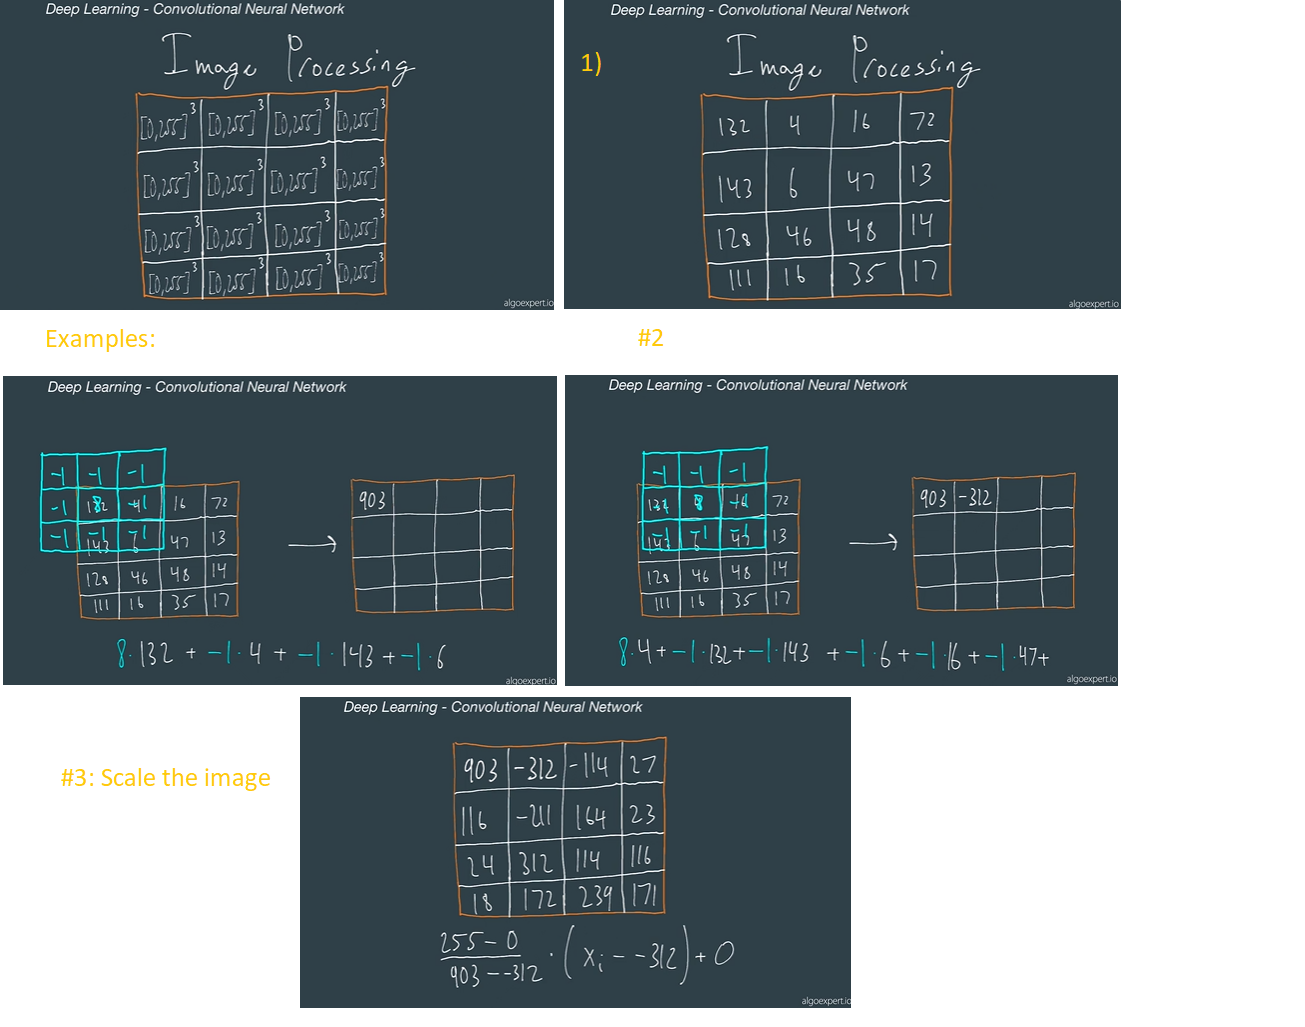 Deep Learning - Convolutional Neural Network
Image Processing
[0,255]³ [0,255]³ [0,255]³ [0,255]³
[0,255]³ [0,255]³ [0,255]³ [0,255]³
[0,255]³ [0,255]³ [0,255]³ [0,255]³
[0,255]³ [0,255]³ [0,255]³ [0,255]³
algoexpert.io
Deep Learning - Convolutional Neural Network
1)
Image Processing
132 4 16 72
143 6 47 13
128 46 48 14
111 16 35 17
algoexpert.io
Examples:
#2
Deep Learning - Convolutional Neural Network
-1 -1 -1
-1 8 -1 16 72
-1 -1 -1 47 13
128 46 48 14
111 16 35 17
903
8·132 + -1·4 + -1·143 + -1·6
algoexpert.io
Deep Learning - Convolutional Neural Network
-1 -1 -1
-1 8 -1 72
-1 -1 -1 13
128 46 48 14
111 16 35 17
903 -312
8·4+-1·132+-1·143 +-1·6+-1·16+-1·47+
algoexpert.io
#3: Scale the image
Deep Learning - Convolutional Neural Network
903 -312 -114 27
116 -211 164 23
24 312 114 116
18 172 239 171
255-0
903--312
·(xi--312)+0
algoexpert.io